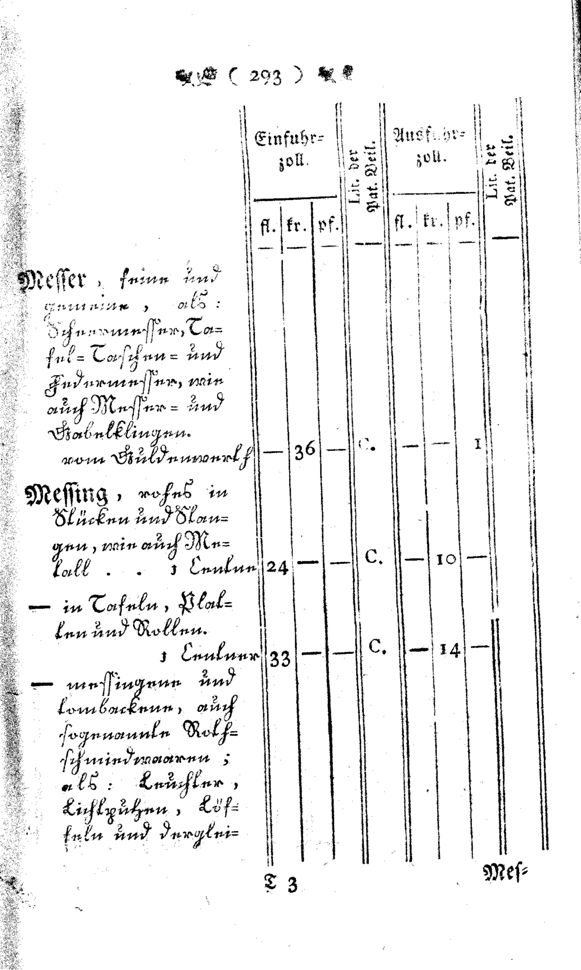 ( 293 )
Einfuhr= zoll. Lit. der Pat. Beil. Ausfuhr= zoll. Lit. der Pat. Beil.
fl. kr. pf. fl. kr. pf.
Messer, feine und
gemeine, als:
Scheermesser, Ta=
fel= Taschen= und
Federmesser, wie
auch Messer= und
Gabelklingen.
vom Guldenwerth — 36 — C. — — 1
Messing, rohes in
Stücken und Stan=
gen, wie auch Me=
tall . . 1 Centner 24 — — C. — 10 —
— in Tafeln, Plat=
ten und Rollen.
1 Centner 33 — — C. — 14 —
— messingene und
tombackene, auch
sogenannte Roth=
schmiedwaaren;
als: Leuchter,
Lichtputzen, Löf=
feln und derglei=
T 3 Mes=